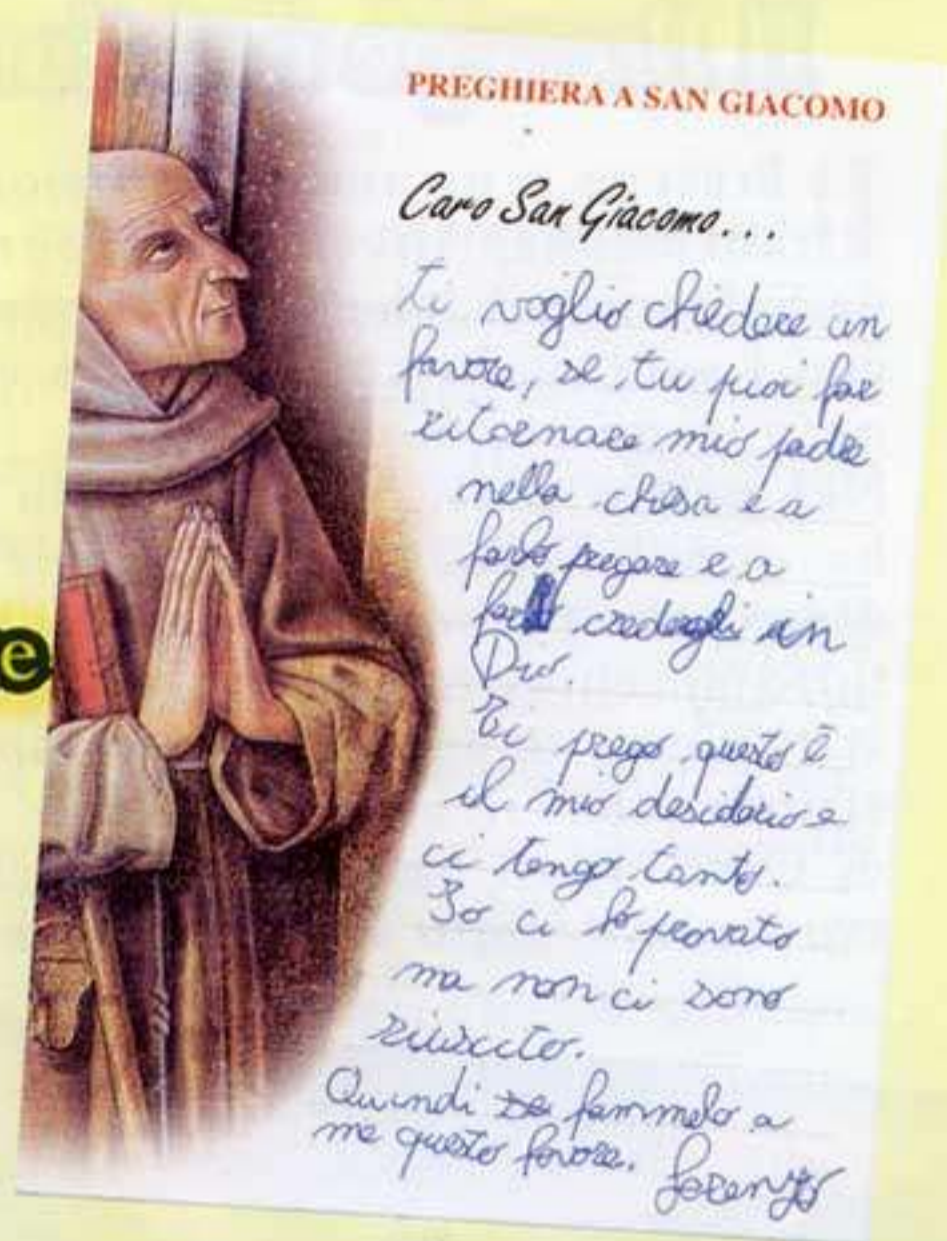 PREGHIERA A SAN GIACOMO
Caro San Giacomo...
ti voglio chiedere un
favore, se, tu puoi far
ritornare mio padre
nella chiesa e a
farlo pregare e a
credergli in
Dio.
Ti prego questo è
il mio desiderio e
ci tengo tanto.
Io ci ho provato
ma non ci sono
riuscito.
Quindi fammelo a
me questo favore. Lorenzo
e